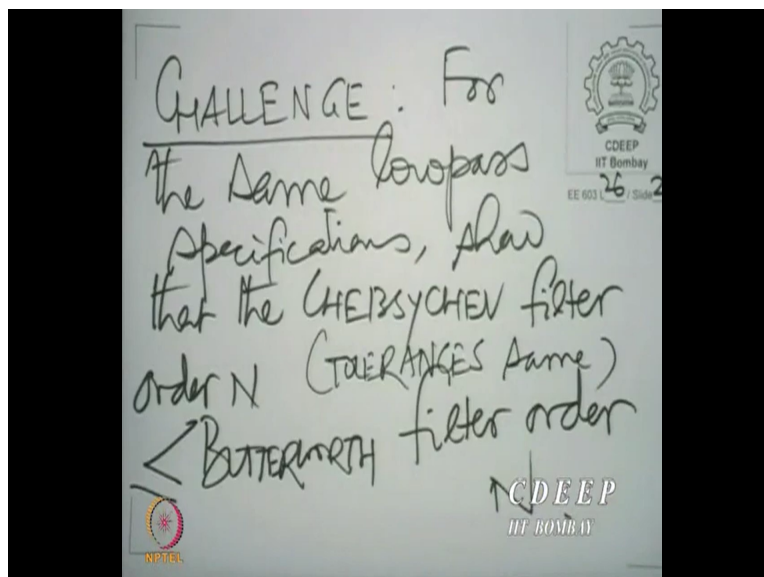 CHALLENGE: For
the same lowpass
specifications, show
that the CHEBSYCHEV filter
order N (TOLERANCES same)
≤ BUTTERWORTH filter order
N
CDEEP
IIT Bombay
EE 603 L 26 / Slide 2
CDEEP
IIT BOMBAY
NPTEL